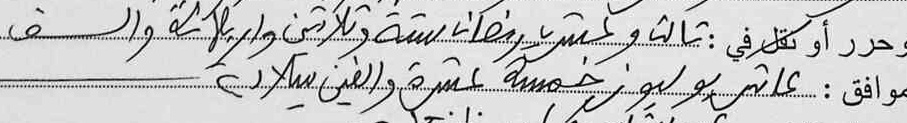 وحرر أو نقل في : ثالث وعشرين رمضان ستة وثلاثين واربعمائة والـــــف
موافق : عاشر يوليوز خمسة عشرة والفين ميلادية